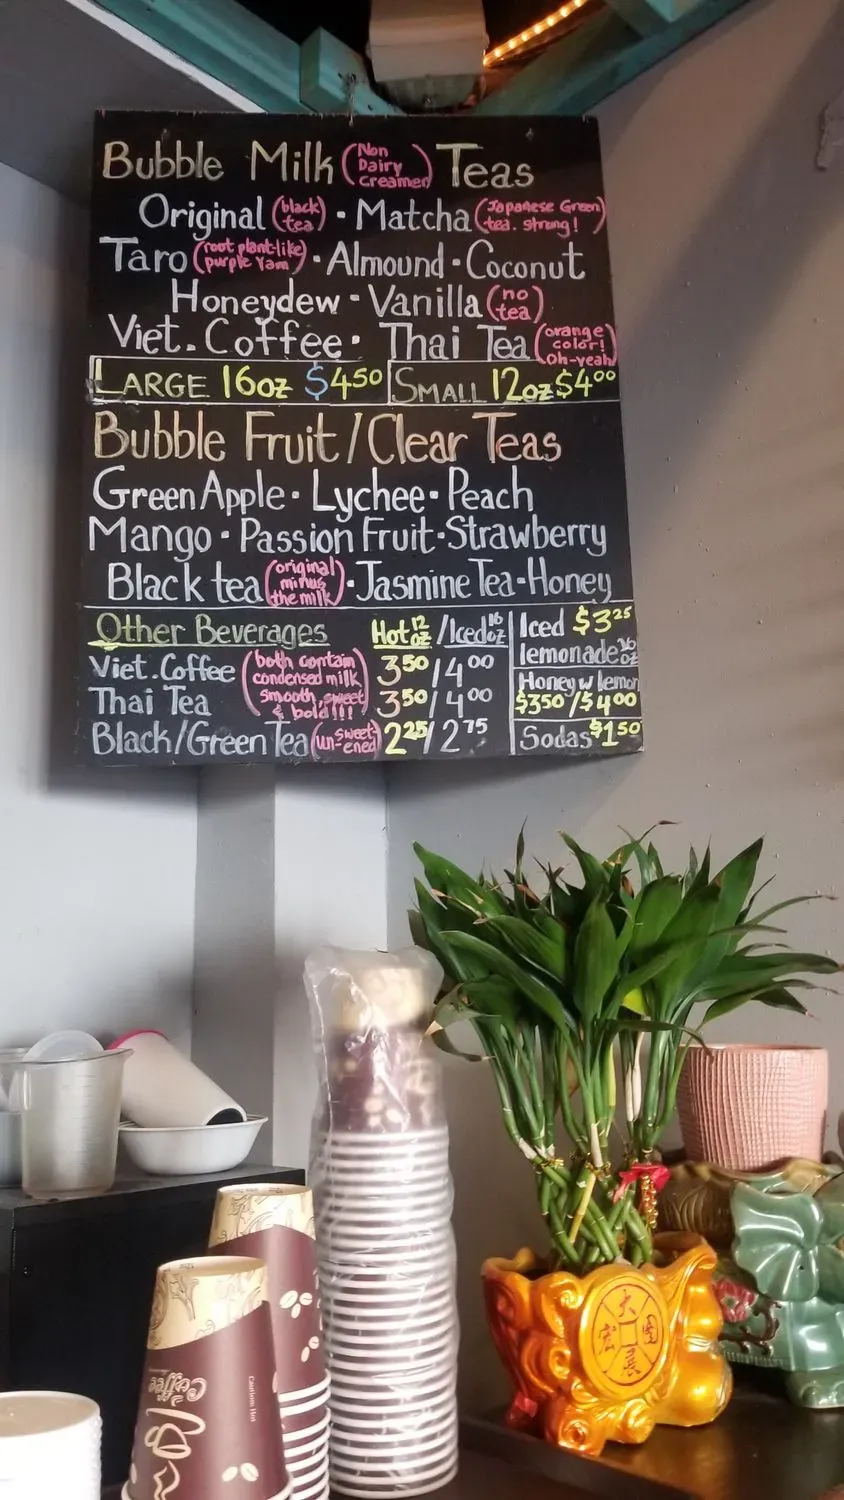 Bubble Milk (Non Dairy Creamer) Teas
Original (black tea) • Matcha (Japanese Green tea. strong!)
Taro (root plant-like purple yam) • Almound • Coconut
Honeydew • Vanilla (no tea)
Viet. Coffee • Thai Tea (orange color! Oh-yeah)
LARGE 16oz $4.50 SMALL 12oz $4.00
Bubble Fruit/Clear Teas
Green Apple • Lychee • Peach
Mango • Passion Fruit • Strawberry
Black tea (original minus the milk) • Jasmine Tea • Honey
Other Beverages Hot 12 oz / Iced 16 oz
Viet. Coffee (both contain condensed milk smooth, sweet & bold!!!) 3.50/4.00
Thai Tea 3.50/4.00
Black/Green Tea (un-sweet-ened) 2.25/2.75
Iced $3.25
lemonade 16 oz
Honey w lemon
$3.50/$4.00
Sodas $1.50
Coffee
Caution: Hot
大
宏 圖
展